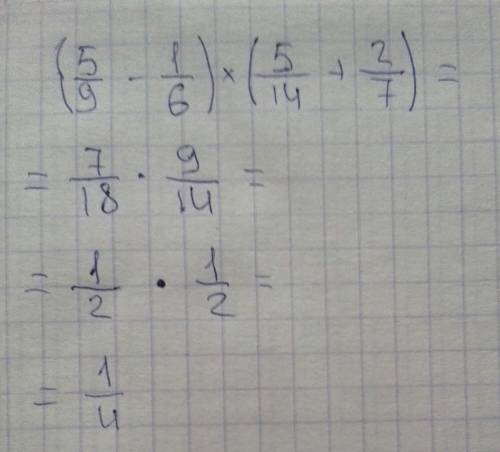 (5/9 - 1/6) × (5/14 + 2/7) =
= 7/18 · 9/14 =
= 1/2 · 1/2 =
= 1/4